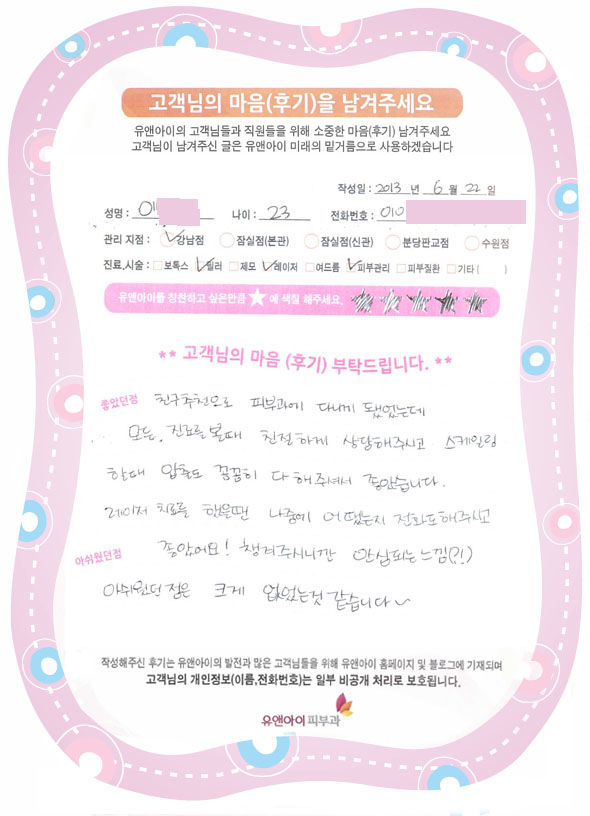 고객님의 마음(후기)을 남겨주세요
유앤아이의 고객님들과 직원들을 위해 소중한 마음(후기) 남겨주세요
고객님이 남겨주신 글은 유앤아이 미래의 밑거름으로 사용하겠습니다
작성일 : 2013 년 6 월 22 일
성명 : 이 나이 : 23 전화번호 : 010
관리 지점 : 강남점 잠실점(본관) 잠실점(신관) 분당판교점 수원점
진료,시술 : 보톡스 필러 제모 레이저 여드름 피부관리 피부질환 기타 ( )
유앤아이를 칭찬하고 싶은만큼 ★ 에 색칠 해주세요.
** 고객님의 마음 (후기) 부탁드립니다. **
좋았던점 친구추천으로 피부과에 다니게 됐었는데
모든, 진료를 볼때 친절하게 상담해주시고 스케일링
할때 압출도 꼼꼼히 다 해주셔서 좋았습니다.
레이저 치료를 했을땐 나중에 어땠는지 전화도해주시고
아쉬웠던점 좋았어요! 챙겨주시니깐 안심되는느낌(?!)
아쉬웠던 점은 크게 없었는것 같습니다~
작성해주신 후기는 유앤아이의 발전과 많은 고객님들을 위해 유앤아이 홈페이지 및 블로그에 기재되며
고객님의 개인정보(이름,전화번호)는 일부 비공개 처리로 보호됩니다.
유앤아이피부과